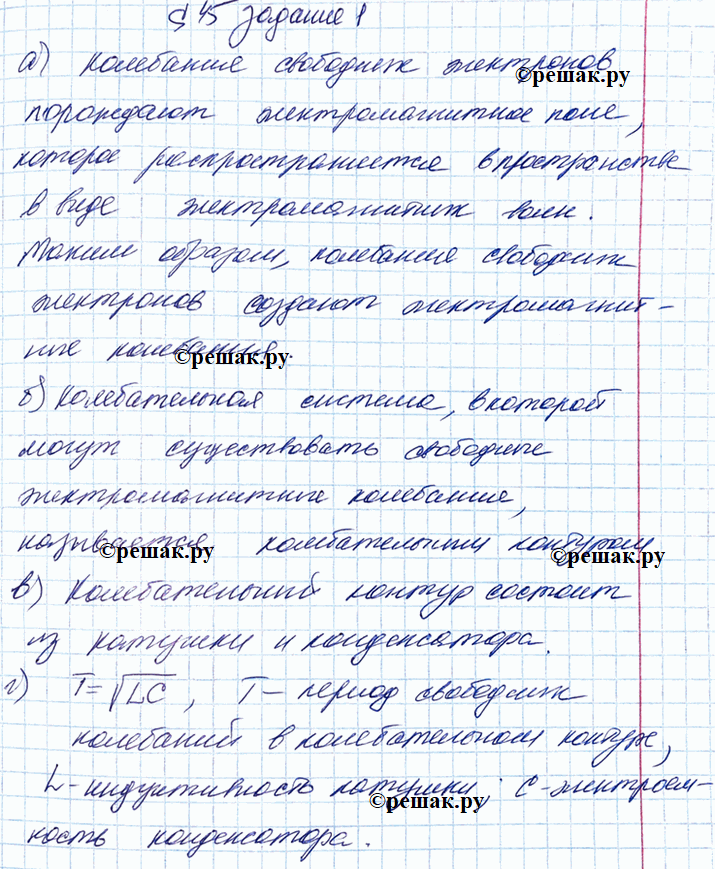 § 45 задание 1
а) колебание свободных электронов
©решак.ру
порождают электромагнитное поле,
которое распространяется в пространстве
в виде электромагнитных волн.
Таким образом, колебания свободных
электронов создают электромагнит-
ные колебания.
©решак.ру
б) Колебательная система, в которой
могут существовать свободные
электромагнитные колебания,
называется колебательным контуром
©решак.ру ©решак.ру
в) Колебательный контур состоит
из катушки и конденсатора.
г) T=√LC, T – период свободных
колебаний в колебательном контуре,
L-индуктивность катушки; С-электроем-
©решак.ру
кость конденсатора.